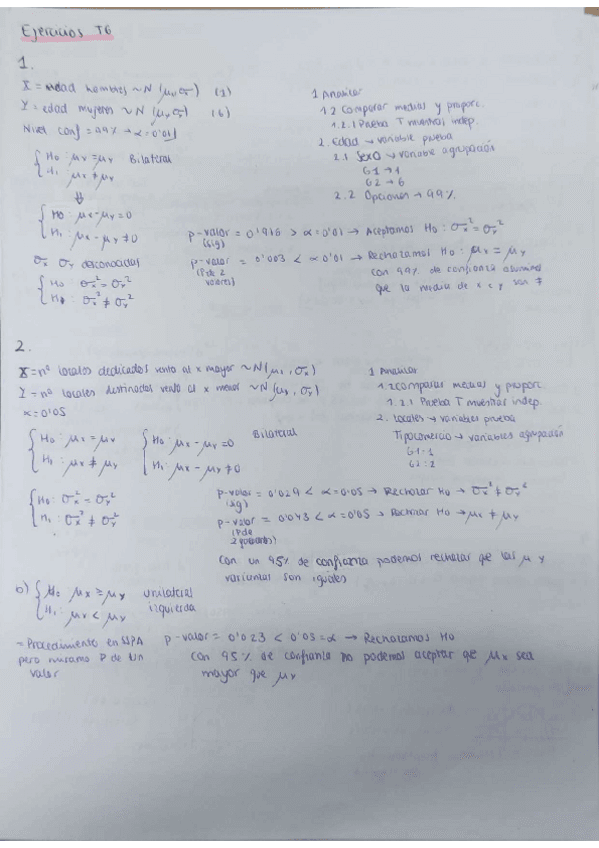 Ejercicios T6
1.
X = edad hombres ~ N (μx, σ) (1)
Y = edad mujeres ~ N (μy, σ) (6)
Nivel conf = 99% → α = 0'01
{ H0 : μx = μy Bilateral
H1 : μx ≠ μy
⇓
{ H0 : μx - μy = 0
H1 : μx - μy ≠ 0
σx σy desconocidas
{ H0 : σx² = σy²
H1 : σx² ≠ σy²
1 Analizar
1.2 Comparar medias y proporc.
1.2.1 Prueba T muestras indep.
2. Edad → variable prueba
2.1 Sexo → variable agrupación
G1 → 1
G2 → 6
2.2 Opciones → 99%
p-valor = 0'916 > α = 0'01 → Aceptamos H0 : σx² = σy²
(sig)
p-valor = 0'003 < α 0'01 → Rechazamos H0 : μx = μy
(P de 2
valores)
con 99% de confianza asumimos
que la media de x e y son ≠
2.
X = nº locales dedicados venta al x mayor ~ N(μx, σx)
Y = nº locales destinados venta al x menor ~ N(μy, σy)
α = 0'05
{ H0 : μx = μy { H0 : μx - μy = 0 Bilateral
H1 : μx ≠ μy H1 : μx - μy ≠ 0
{ H0 : σx² = σy²
H1 : σx² ≠ σy²
1 Analizar
1.2 comparar medias y proporc.
1.2.1 Prueba T muestras indep.
2. Locales → variables prueba
Tipocomercio → variables agrupación
G1: 1
G2: 2
p-valor = 0'029 < α = 0'05 → Rechazar H0 → σx² ≠ σy²
(sig)
p-valor = 0'043 < α = 0'05 → Rechazar H0 → μx ≠ μy
(P de
Con un 95% de confianza podemos rechazar que las μ y
varianzas son iguales
b) { H0 μx ≥ μy unilateral
H1 : μx < μy izquierda
= Procedimiento en
pero miramos P de un
valor
p-valor = 0'023 < 0'05 = α → Rechazamos H0
Con 95% de confianza no podemos aceptar que μx sea
mayor que μy